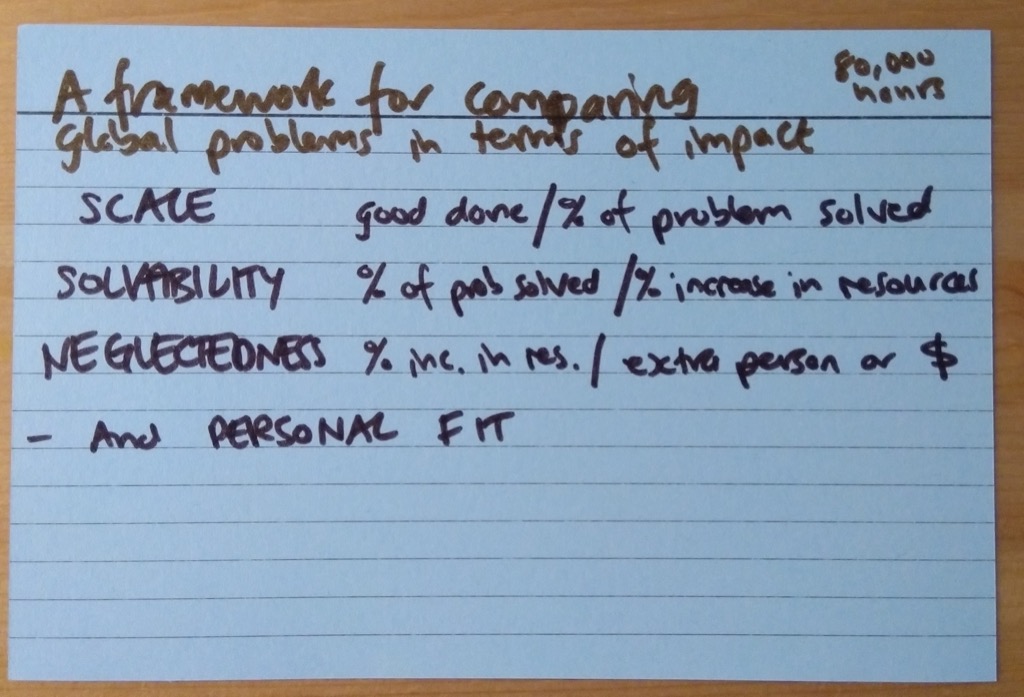 A framework for comparing
global problems in terms of impact
80,000
hours
SCALE good done / % of problem solved
SOLVABILITY % of prob solved / % increase in resources
NEGLECTEDNESS % inc. in res. / extra person or $
- And PERSONAL FIT